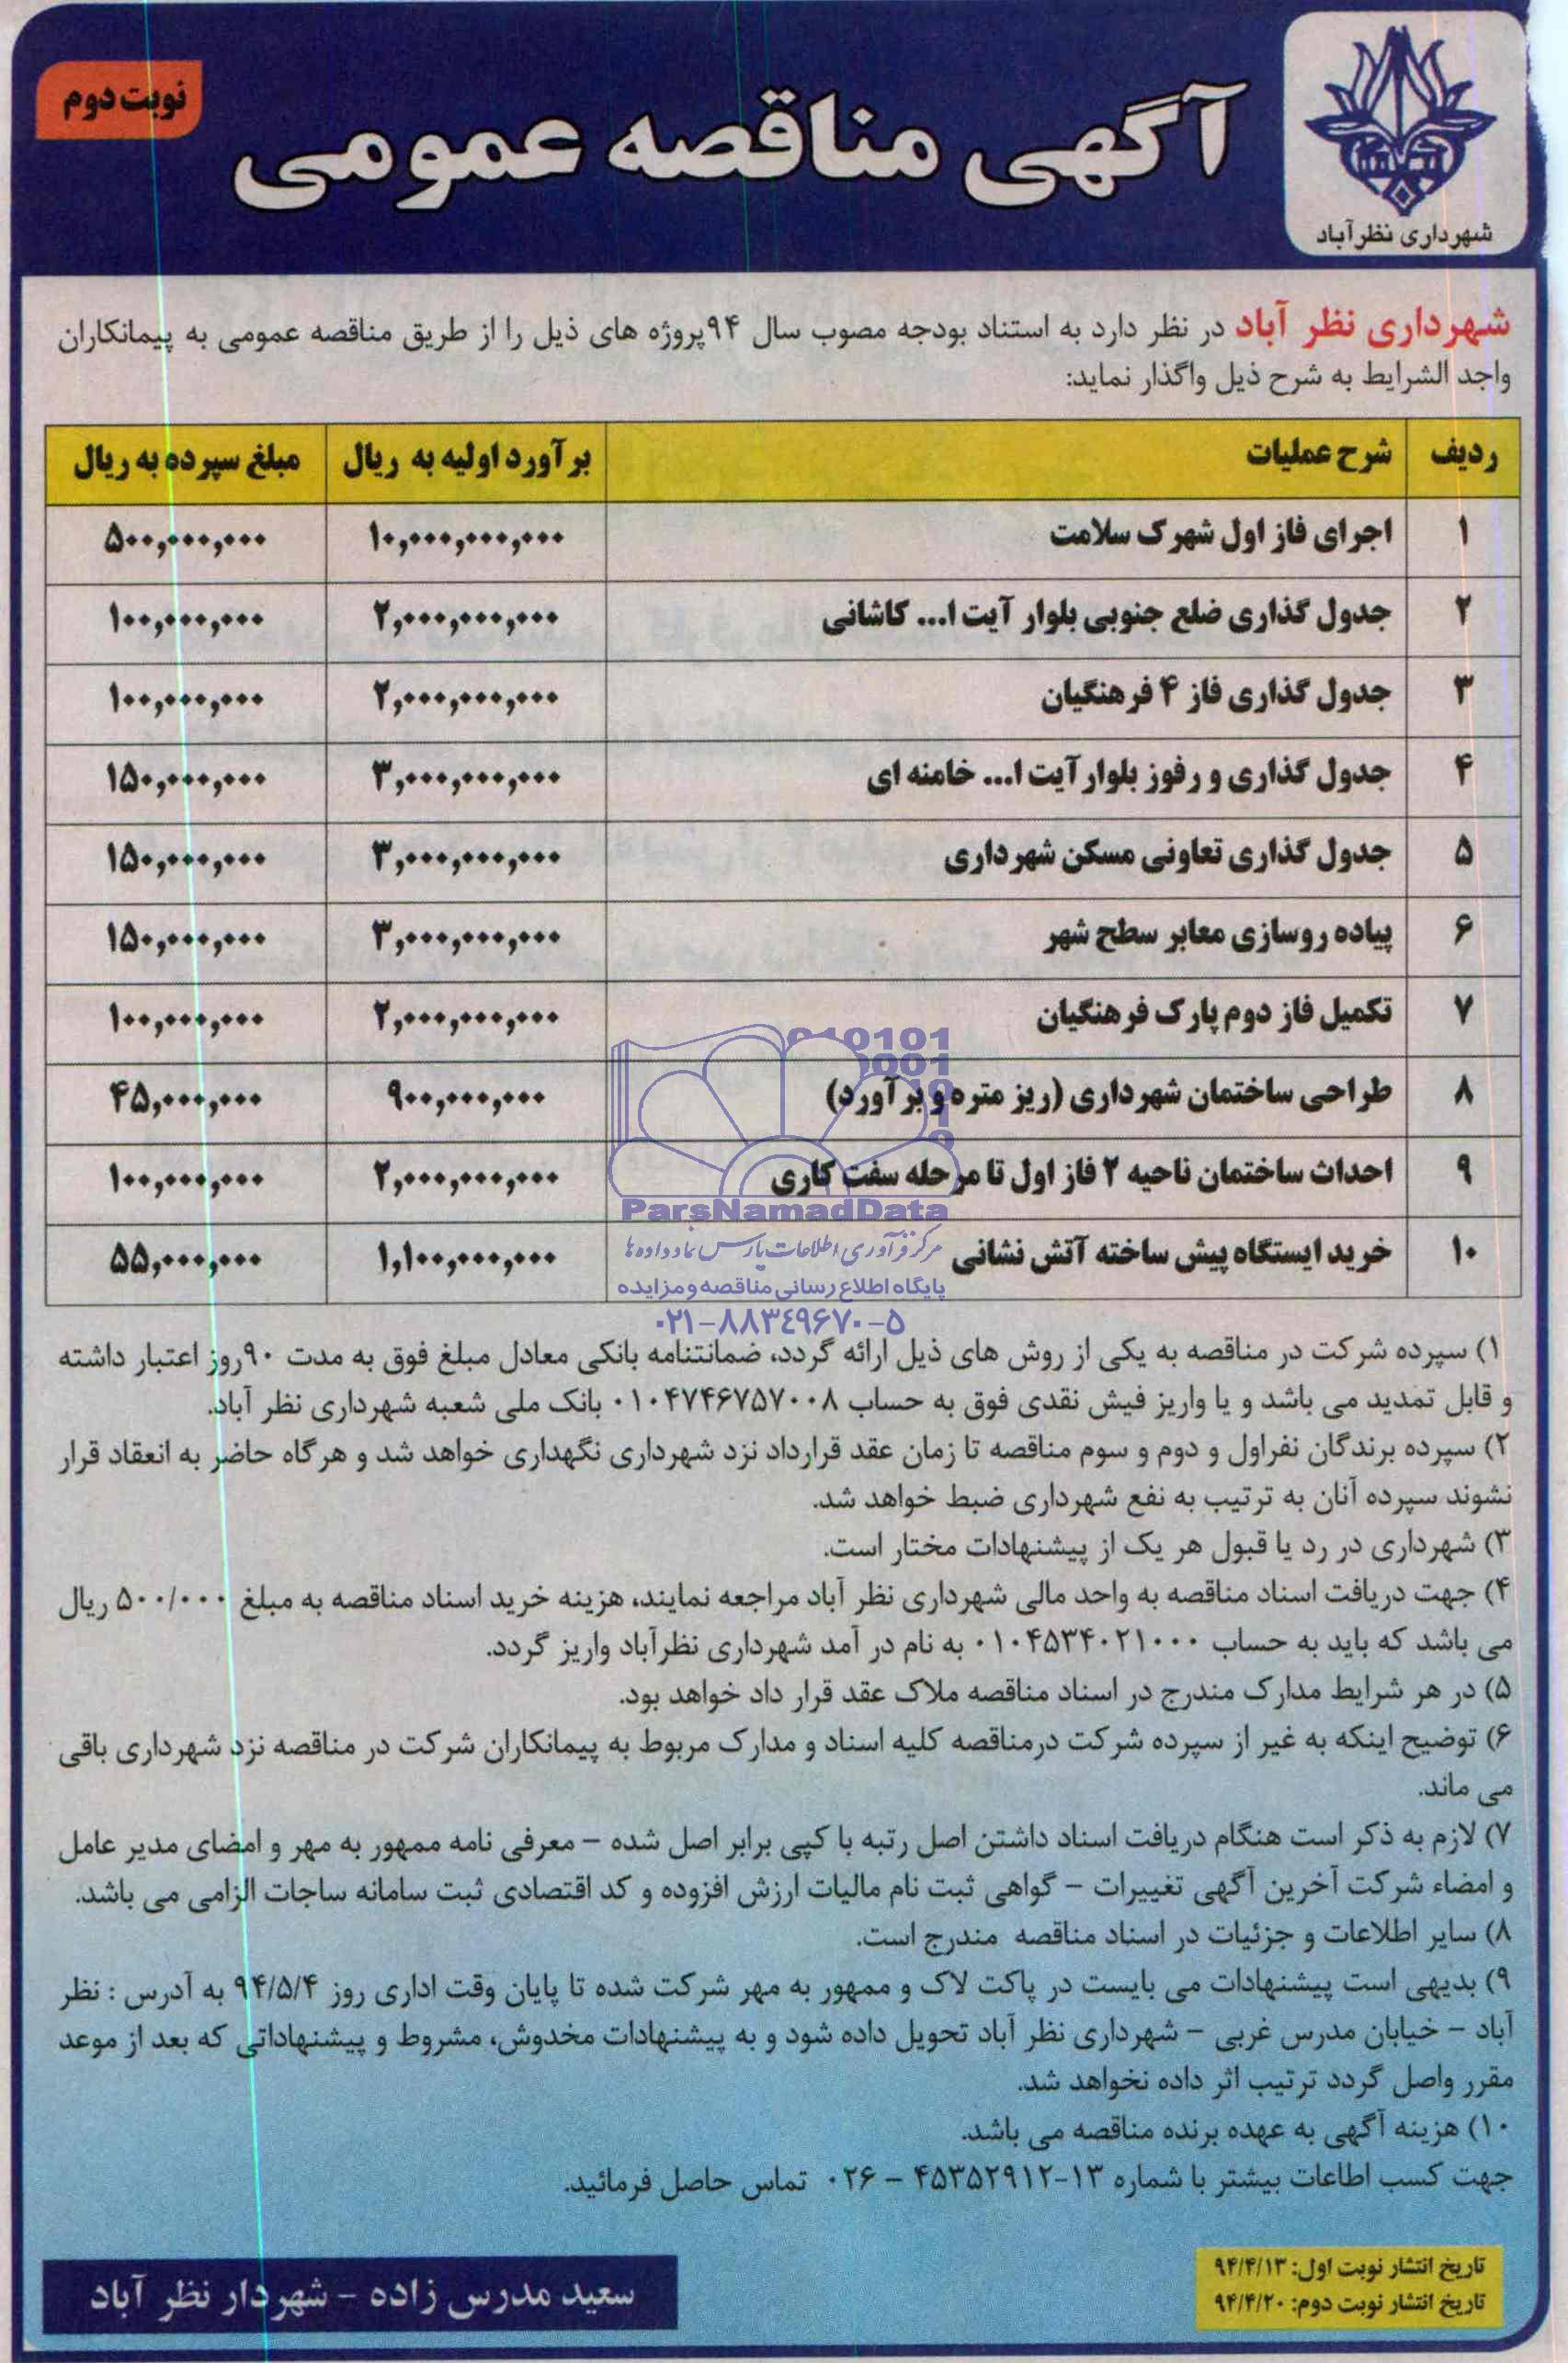 شهرداری نظرآباد
آگهی مناقصه عمومی
نوبت دوم
شهرداری نظر آباد در نظر دارد به استناد بودجه مصوب سال ۹۴پروژه های ذیل را از طریق مناقصه عمومی به پیمانکاران
واجد الشرایط به شرح ذیل واگذار نماید:
ردیف شرح عملیات برآورد اولیه به ریال مبلغ سپرده به ریال
۱ اجرای فاز اول شهرک سلامت ۱۰,۰۰۰,۰۰۰,۰۰۰ ۵۰۰,۰۰۰,۰۰۰
۲ جدول گذاری ضلع جنوبی بلوار آیت ا... کاشانی ۲,۰۰۰,۰۰۰,۰۰۰ ۱۰۰,۰۰۰,۰۰۰
۳ جدول گذاری فاز ۴ فرهنگیان ۲,۰۰۰,۰۰۰,۰۰۰ ۱۰۰,۰۰۰,۰۰۰
۴ جدول گذاری و رفوژ بلوار آیت ا... خامنه ای ۳,۰۰۰,۰۰۰,۰۰۰ ۱۵۰,۰۰۰,۰۰۰
۵ جدول گذاری تعاونی مسکن شهرداری ۳,۰۰۰,۰۰۰,۰۰۰ ۱۵۰,۰۰۰,۰۰۰
۶ پیاده روسازی معابر سطح شهر ۳,۰۰۰,۰۰۰,۰۰۰ ۱۵۰,۰۰۰,۰۰۰
۷ تکمیل فاز دوم پارک فرهنگیان ۲,۰۰۰,۰۰۰,۰۰۰ ۱۰۰,۰۰۰,۰۰۰
۸ طراحی ساختمان شهرداری (ریز متره و برآورد) ۹۰۰,۰۰۰,۰۰۰ ۴۵,۰۰۰,۰۰۰
۹ احداث ساختمان ناحیه ۲ فاز اول تا مرحله سفت کاری ۲,۰۰۰,۰۰۰,۰۰۰ ۱۰۰,۰۰۰,۰۰۰
۱۰ خرید ایستگاه پیش ساخته آتش نشانی ۱,۱۰۰,۰۰۰,۰۰۰ ۵۵,۰۰۰,۰۰۰
ParsNamadData
مرکز فرآوری اطلاعات پارس نماد داده ها
پایگاه اطلاع رسانی مناقصه و مزایده
۰۲۱-۸۸۳٤۹۶۷۰-۵
۱) سپرده شرکت در مناقصه به یکی از روش های ذیل ارائه گردد، ضمانتنامه بانکی معادل مبلغ فوق به مدت ۹۰روز اعتبار داشته
و قابل تمدید می باشد و یا واریز فیش نقدی فوق به حساب ۰۱۰۴۷۴۶۷۵۷۰۰۸ بانک ملی شعبه شهرداری نظر آباد.
۲) سپرده برندگان نفراول و دوم و سوم مناقصه تا زمان عقد قرارداد نزد شهرداری نگهداری خواهد شد و هرگاه حاضر به انعقاد قرار
نشوند سپرده آنان به ترتیب به نفع شهرداری ضبط خواهد شد.
۳) شهرداری در رد یا قبول هر یک از پیشنهادات مختار است.
۴) جهت دریافت اسناد مناقصه به واحد مالی شهرداری نظر آباد مراجعه نمایند، هزینه خرید اسناد مناقصه به مبلغ ۵۰۰/۰۰۰ ریال
می باشد که باید به حساب ۰۱۰۴۵۳۴۰۲۱۰۰۰ به نام در آمد شهرداری نظرآباد واریز گردد.
۵) در هر شرایط مدارک مندرج در اسناد مناقصه ملاک عقد قرار داد خواهد بود.
۶) توضیح اینکه به غیر از سپرده شرکت درمناقصه کلیه اسناد و مدارک مربوط به پیمانکاران شرکت در مناقصه نزد شهرداری باقی
می ماند.
۷) لازم به ذکر است هنگام دریافت اسناد داشتن اصل رتبه با کپی برابر اصل شده – معرفی نامه ممهور به مهر و امضای مدیر عامل
و امضاء شرکت آخرین آگهی تغییرات – گواهی ثبت نام مالیات ارزش افزوده و کد اقتصادی ثبت سامانه ساجات الزامی می باشد.
۸) سایر اطلاعات و جزئیات در اسناد مناقصه مندرج است.
۹) بدیهی است پیشنهادات می بایست در پاکت لاک و ممهور به مهر شرکت شده تا پایان وقت اداری روز ۹۴/۵/۴ به آدرس : نظر
آباد – خیابان مدرس غربی – شهرداری نظر آباد تحویل داده شود و به پیشنهادات مخدوش، مشروط و پیشنهاداتی که بعد از موعد
مقرر واصل گردد ترتیب اثر داده نخواهد شد.
۱۰) هزینه آگهی به عهده برنده مناقصه می باشد.
جهت کسب اطاعات بیشتر با شماره ۱۳-۴۵۳۵۲۹۱۲ – ۰۲۶ تماس حاصل فرمائید.
تاریخ انتشار نوبت اول: ۹۴/۴/۱۳
تاریخ انتشار نوبت دوم: ۹۴/۴/۲۰
سعید مدرس زاده - شهردار نظر آباد